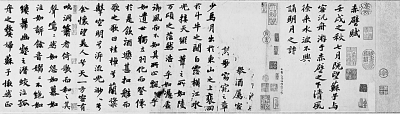 赤壁賦
壬戌之秋七月既望蘇子與
客泛舟游于赤壁之下清風
徐来水波不興
舉酒屬客
誦明月之詩
歌窈窕之章
少焉月出於東山之上裴回
於斗牛之間白露橫江水
光接天縱一葦之所如陵
萬頃之茫然浩浩乎如馮虛
御風而不知其所止飄飄乎
如遺世獨立羽化而登僊
於是飲酒樂甚扣舷而
歌之歌曰桂棹兮蘭槳
擊空明兮泝流光渺渺兮
余懷望美人兮天一方客有
吹洞簫者倚歌而和之其
聲嗚嗚然如怨如慕如
泣如訴餘音嫋嫋不絕如
縷舞幽壑之潛蛟泣孤
舟之嫠婦蘇子愀然正